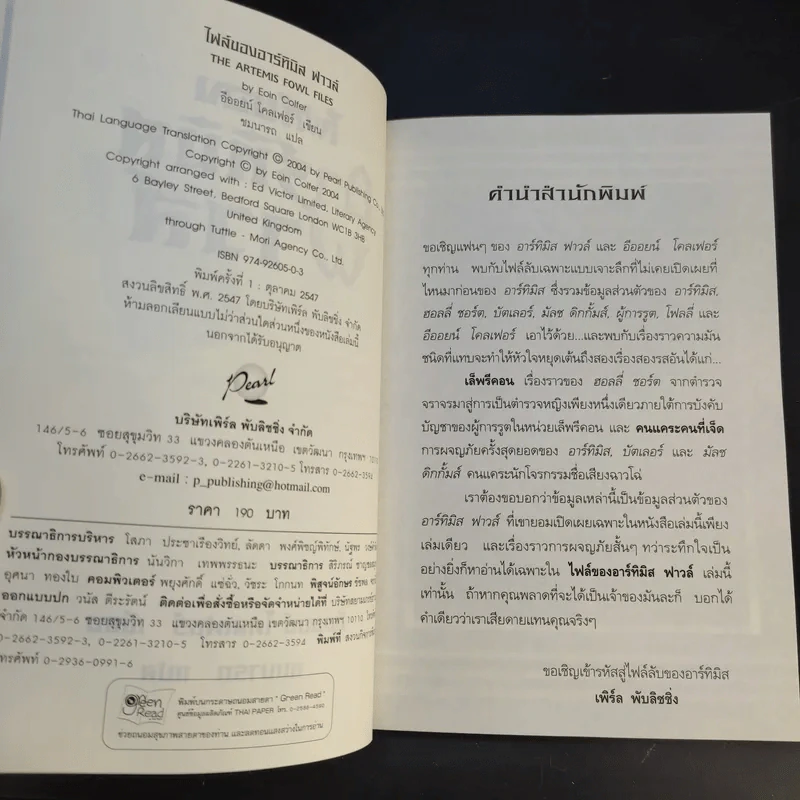 ไฟล์ของอาร์ทิมิส ฟาวล์
THE ARTEMIS FOWL FILES
by Eoin Colfer
อีออยน์ โคลเฟอร์ เขียน
ชมนารถ แปล
Thai Language Translation Copyright © 2004 by Pearl Publishing Co.,
Copyright © by Eoin Colfer 2004
Copyright arranged with : Ed Victor Limited, Literary Agency
6 Bayley Street, Bedford Square London WC1B 3HB
United Kingdom
through Tuttle - Mori Agency Co., Ltd.
ISBN 974-92605-0-3
พิมพ์ครั้งที่ 1 : ตุลาคม 2547
สงวนลิขสิทธิ์ พ.ศ. 2547 โดยบริษัทเพิร์ล พับลิชชิ่ง จำกัด
ห้ามลอกเลียนแบบไม่ว่าส่วนใดส่วนหนึ่งของหนังสือเล่มนี้
นอกจากได้รับอนุญาต
Pearl
บริษัทเพิร์ล พับลิชชิ่ง จำกัด
146/5-6 ซอยสุขุมวิท 33 แขวงคลองตันเหนือ เขตวัฒนา กรุงเทพฯ 10110
โทรศัพท์ 0-2662-3592-3, 0-2261-3210-5 โทรสาร 0-2662-3594
e-mail : p_publishing@hotmail.com
ราคา 190 บาท
บรรณาธิการบริหาร โสภา ประชาเรืองวิทย์, ลัดดา พงศ์พิชญ์พิทักษ์,
หัวหน้ากองบรรณาธิการ นันวิกา เทพพรรธนะ บรรณาธิการ สิริภรณ์
อุศนา ทองใบ คอมพิวเตอร์ พยุงศักดิ์ แซ่ฉั่ว, วัชระ โกกนท พิสูจน์อักษร
ออกแบบปก วนัส ตีระรัตน์ ติดต่อเพื่อสั่งซื้อหรือจัดจำหน่ายได้ที่
จำกัด 146/5-6 ซอยสุขุมวิท 33 แขวงคลองตันเหนือ เขตวัฒนา กรุงเทพฯ 10110
0-2662-3592-3, 0-2261-3210-5 โทรสาร 0-2662-3594 พิมพ์ที่
โทรศัพท์ 0-2936-0991-6
Green Read
พิมพ์บนกระดาษถนอมสายตา "Green Read"
ศูนย์ข้อมูลผลิตภัณฑ์ THAI PAPER โทร.
ช่วยถนอมสุขภาพสายตาของท่าน และลดทอนแสงสว่างในการอ่าน
คำนำสำนักพิมพ์
ขอเชิญแฟนๆ ของ อาร์ทิมิส ฟาวล์ และ อีออยน์ โคลเฟอร์
ทุกท่าน พบกับไฟล์ลับเฉพาะแบบเจาะลึกที่ไม่เคยเปิดเผยที่
ไหนมาก่อนของ อาร์ทิมิส ซึ่งรวมข้อมูลส่วนตัวของ อาร์ทิมิส,
ฮอลลี่ ชอร์ต, บัตเลอร์, มัลช ดิกกั้มส์, ผู้การรูต, โฟลลี่ และ
อีออยน์ โคลเฟอร์ เอาไว้ด้วย...และพบกับเรื่องราวความมัน
ชนิดที่แทบจะทำให้หัวใจหยุดเต้นถึงสองเรื่องสองรสอันได้แก่...
เล็พรีคอน เรื่องราวของ ฮอลลี่ ชอร์ต จากตำรวจ
จราจรมาสู่การเป็นตำรวจหญิงเพียงหนึ่งเดียวภายใต้การบังคับ
บัญชาของผู้การรูตในหน่วยเล็พรีคอน และ คนแคระคนที่เจ็ด
การผจญภัยครั้งสุดยอดของ อาร์ทิมิส, บัตเลอร์ และ มัลช
ดิกกั้มส์ คนแคระนักโจรกรรมชื่อเสียงฉาวโฉ่
เราต้องขอบอกว่าข้อมูลเหล่านี้เป็นข้อมูลส่วนตัวของ
อาร์ทิมิส ฟาวส์ ที่เขายอมเปิดเผยเฉพาะในหนังสือเล่มนี้เพียง
เล่มเดียว และเรื่องราวการผจญภัยสั้นๆ ทว่าระทึกใจเป็น
อย่างยิ่งก็หาอ่านได้เฉพาะใน ไฟล์ของอาร์ทิมิส ฟาวล์ เล่มนี้
เท่านั้น ถ้าหากคุณพลาดที่จะได้เป็นเจ้าของมันละก็ บอกได้
คำเดียวว่าเราเสียดายแทนคุณจริงๆ
ขอเชิญเข้ารหัสสู่ไฟล์ลับของอาร์ทิมิส
เพิร์ล พับลิชชิ่ง